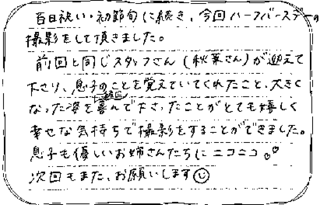 百日祝い・初節句に続き、今回ハーフバースデーの
撮影をして頂きました。
前回と同じスタッフさん(秋葉さん)が迎えて
下さり、息子のことを覚えていてくれたこと、大きく
なった姿を喜んで下さったことがとても嬉しく
幸せな気持ちで撮影をすることができました。
息子も優しいお姉さんたちにニコニコ。
次回もまた、お願いします